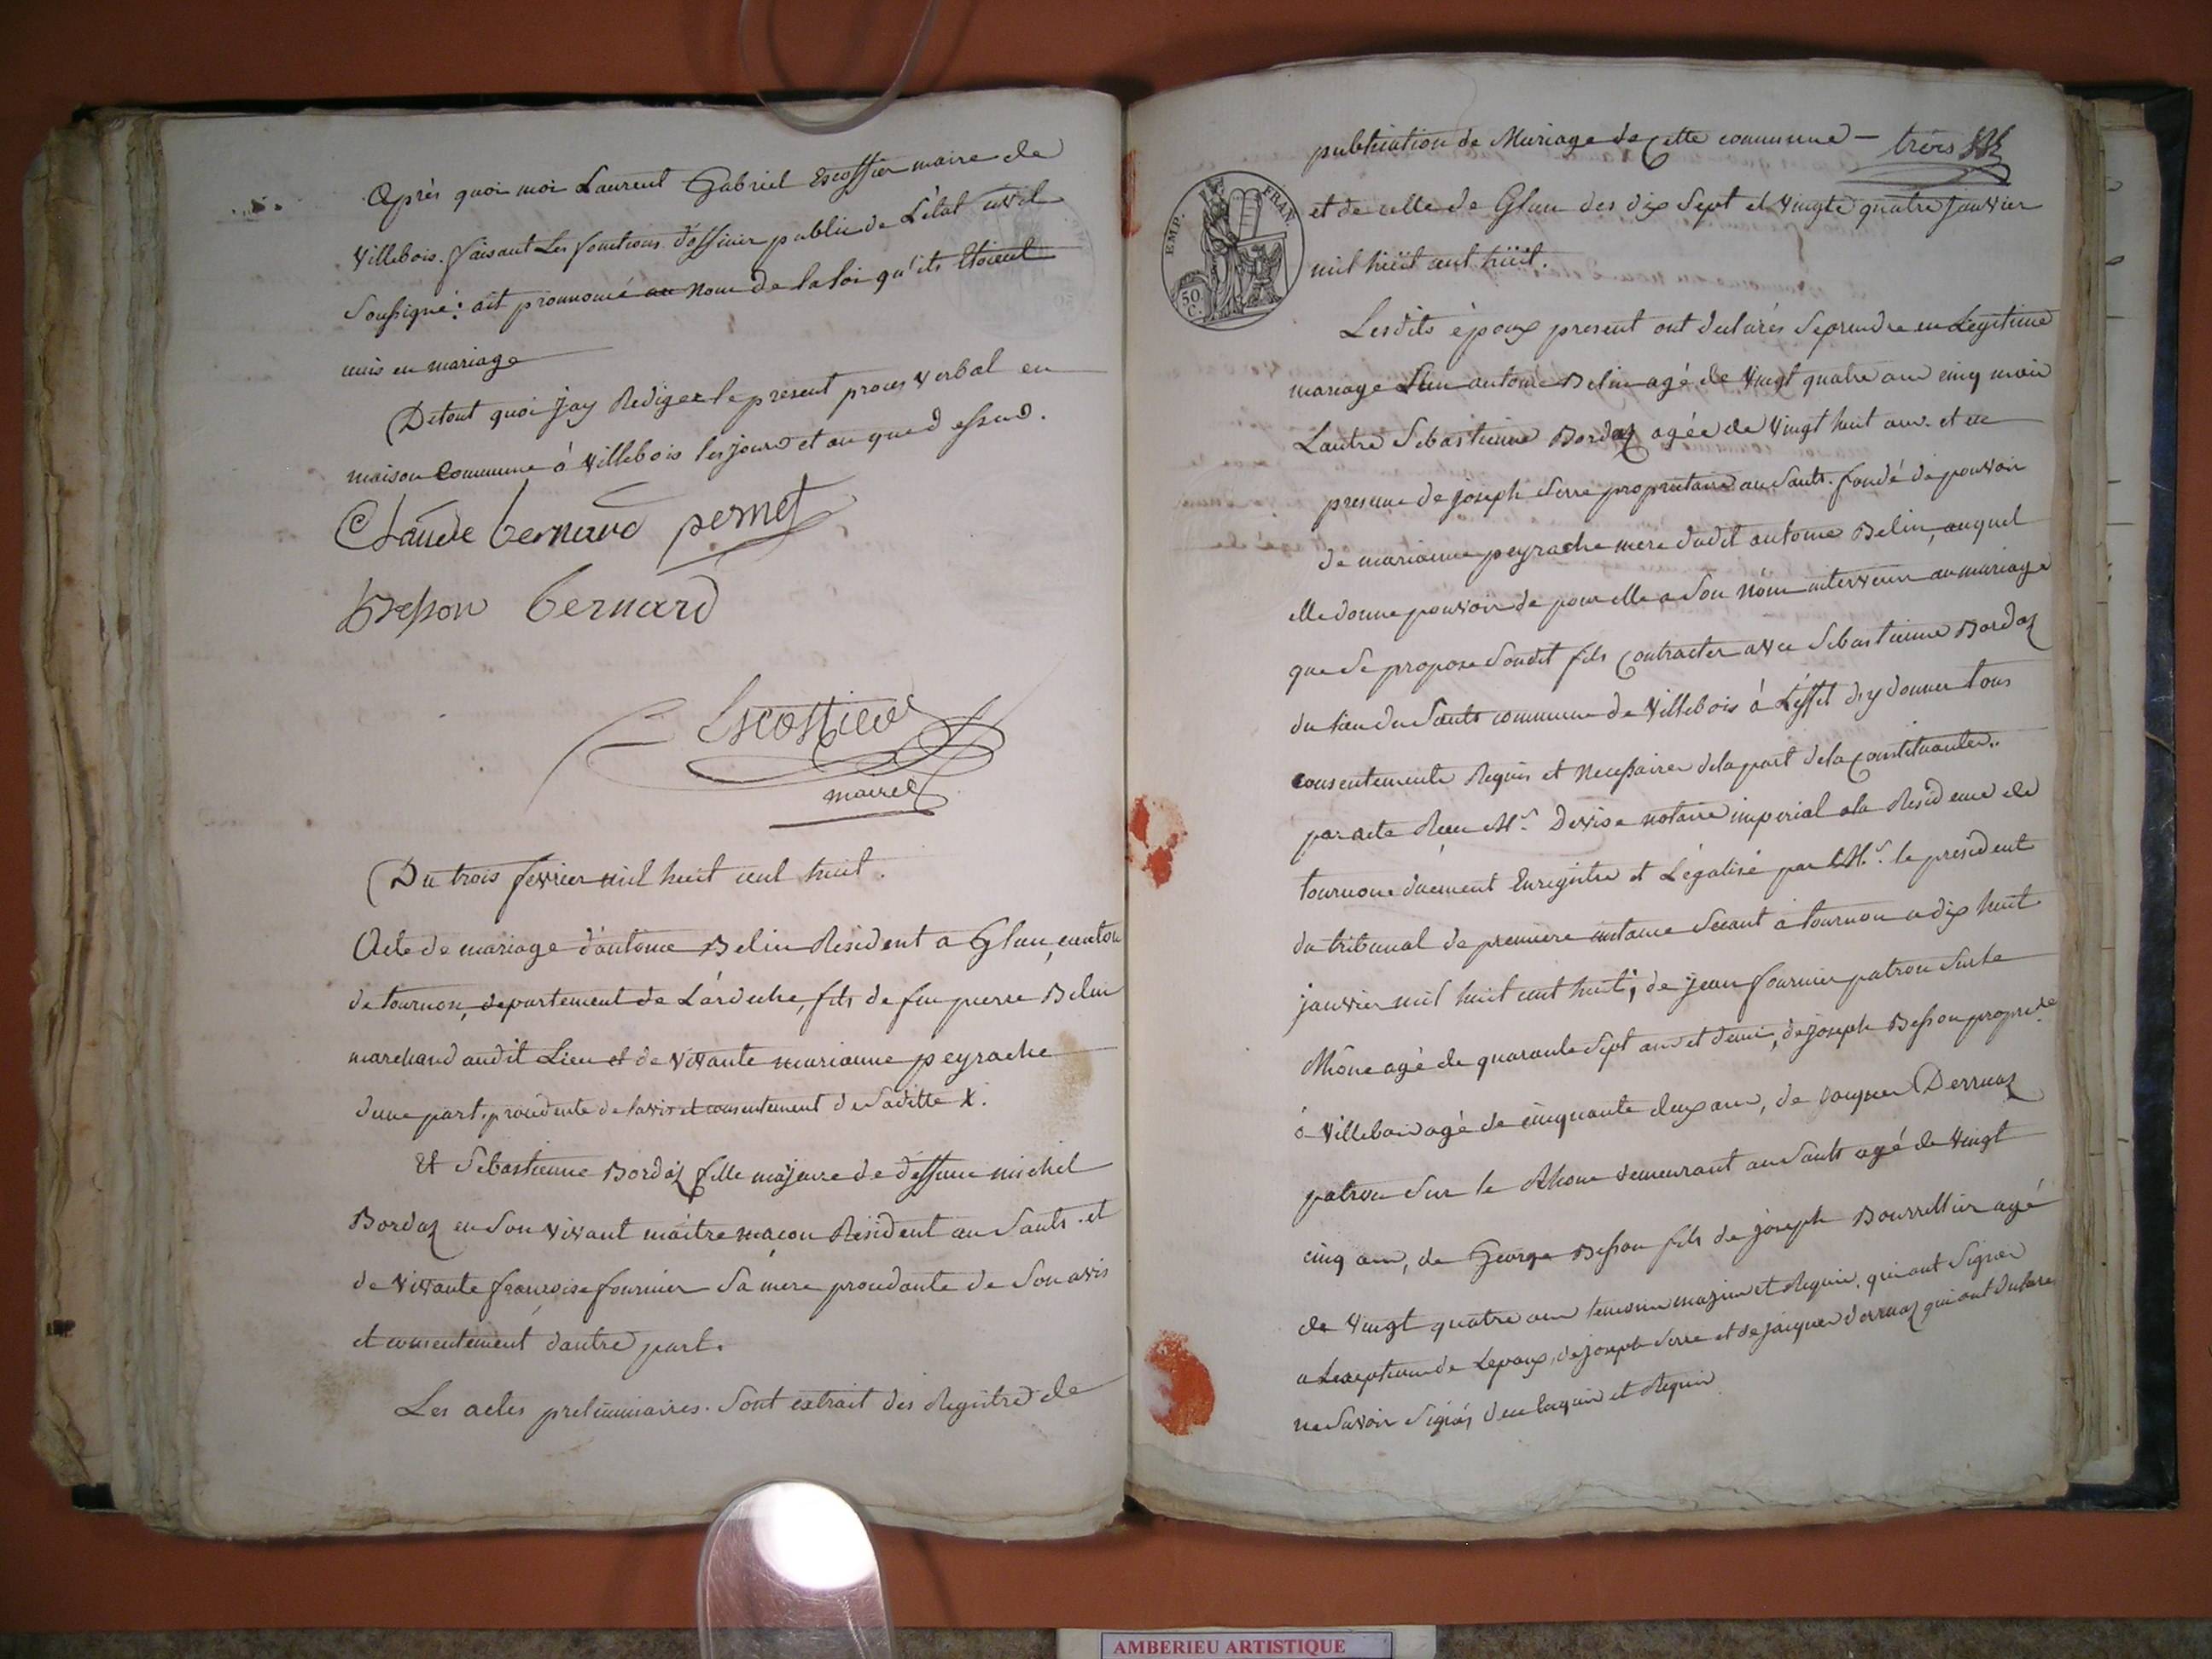 Après quoi moi Laurent Gabriel Escoffier maire de
Villebois. faisant Les fonctions d'officier public de L'état civil
Soussigné: ait prononcé au Nom de la loi qu'ils Etoient
unis en mariage
De tout quoi jay Rediger le present proces verbal en
maison Commune à Villebois les jour et an que dessus.
Claude bernard pernet
Besson bernard
Escoffier
maire
Du trois fevrier mil huit cent huit.
Acte de mariage d'antoine Belin Resident a Glun, canton
de tournon, departement de L'ardeche, fils de feu pierre Belin
marchand audit Lieu et de vivante marianne peyrache
dune part. procedente de lavis et consentement de Saditte X.
Et Sebastienne Bordaz fille majeure de deffunt michel
Bordaz en Son vivant maitre maçon Résident au Sault. et
de vivante françoise fournier Sa mere procedante de Son avis
et consentement dautre part.
Les actes preliminaires. Sont extrait des Registre de
publication de Mariage de Cette commune — trois
EMP. FRAN.
50 C.
et de celle de Glun des dix Sept et vingt quatre janvier
mil huit cent huit.
Lesdits époux present ont declarés Se prendre en Legitime
mariage L'un antoine Belin agé de vingt quatre ans cinq mois
Lautre Sebastienne Bordaz agée de vingt huit ans. et en
presence de joseph Serre propriétaire au Sault. fondé de pouvoir
de marianne peyrache mere dudit antoine Belin, auquel
elle donne pouvoir de pour elle a Son nom intervenir au mariage
que Se propose Sondit fils Contracter avec Sebastienne Bordaz
du lieu du Sault commune de Villebois à L'effet d'y donner tous
consentements Requis et Necessaires de la part de la Constituante.
par acte Recu Mr. Devise notaire imperial a la Residence de
tournon duement Enregistre et Légalisé par Mr. le president
du tribunal de premiere instance Séant à tournon a dix huit
janvier mil huit cent huit; de jean fournier patron Sur le
Rhone agé de quarante Sept ans et demi, de joseph Besson propre
à Villebois agé de cinquante deux ans, de jacques Derruaz
patron Sur le Rhone demeurant au Sault agé de vingt
cinq ans, de George Besson fils de joseph Bourrellier agé
de vingt quatre ans temoins majeurs et Requis. qui ont Signer
a Lexeption de Lepoux, de joseph Serre et de jacques derruaz qui ont declare
ne Savoir Signer, de ce enquis et Requis
AMBERIEU ARTISTIQUE